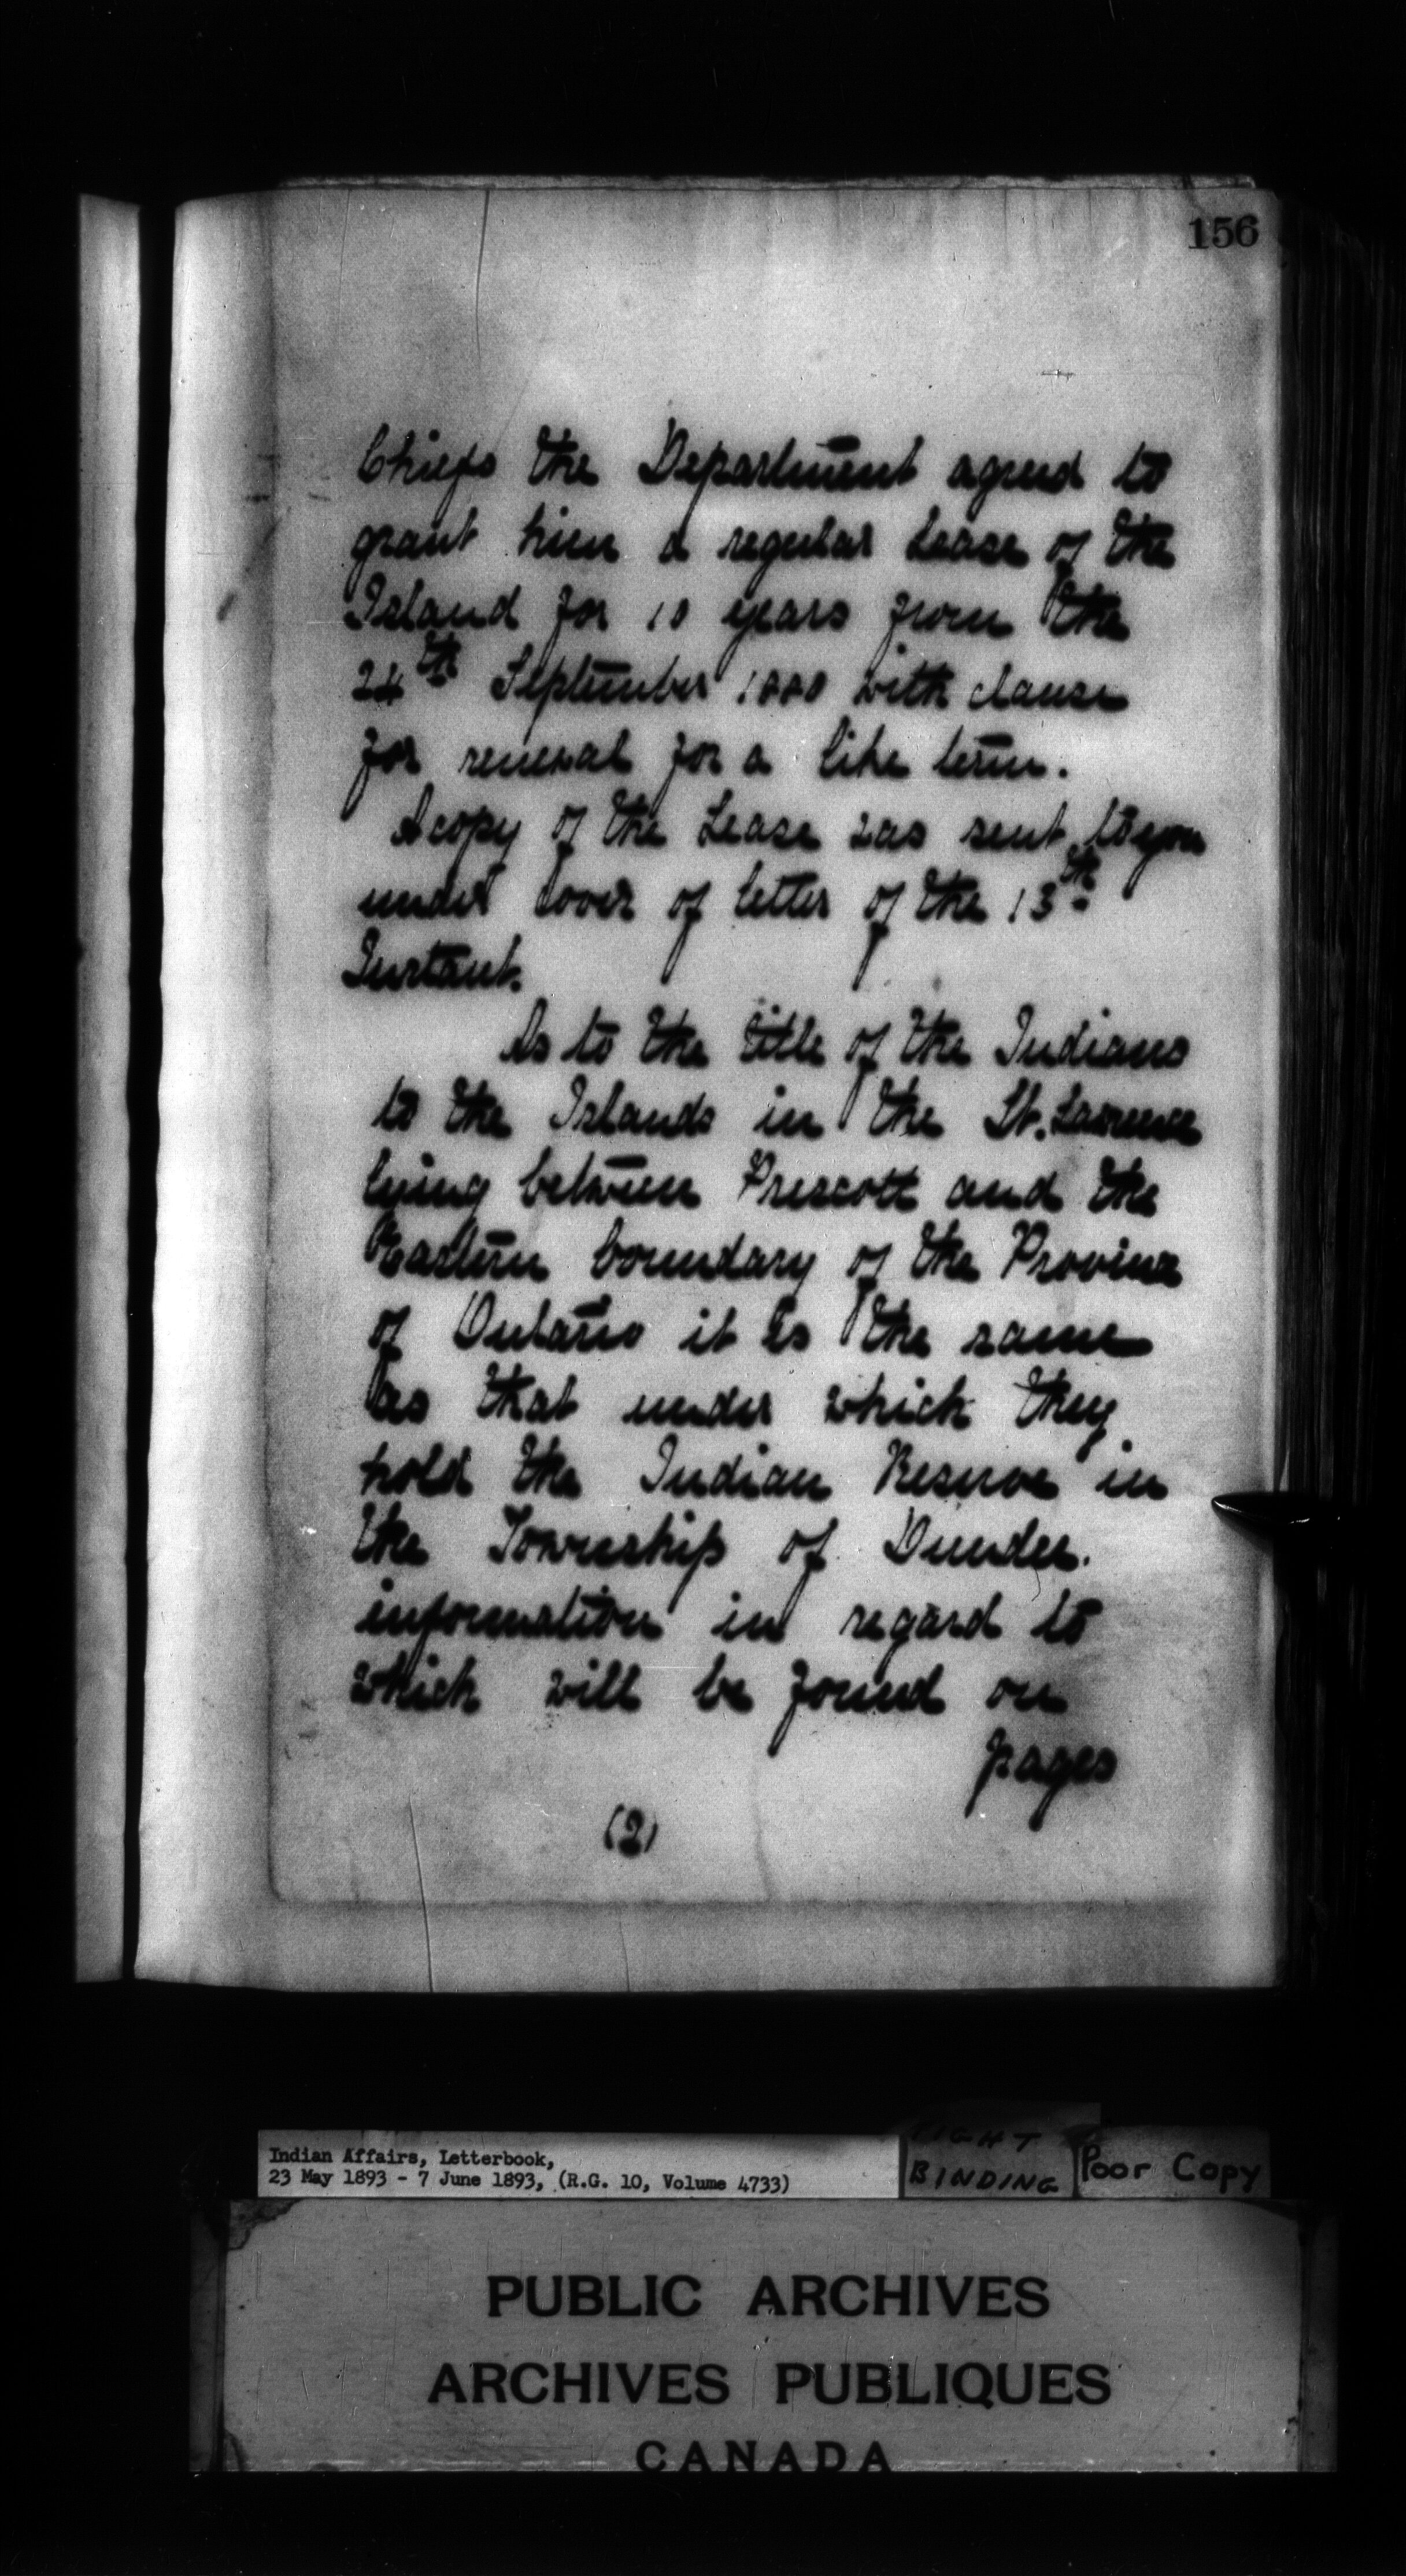 156
Chiefs the Department agreed to
grant him a regular Lease of the
Island for 10 years from the
24th September 1880 with clause
for renewal for a like term.
A copy of the Lease was sent to you
under cover of letter of the 13th
Instant.
As to the title of the Indians
to the Islands in the St. Lawrence
lying between Prescott and the
Eastern boundary of the Province
of Ontario it is the same
as that under which they
hold the Indian Reserve in
the Township of Dundee.
information in regard to
which will be found on
pages
(2)
Indian Affairs, Letterbook,
23 May 1893 - 7 June 1893, (R.G. 10, Volume 4733)
TIGHT
BINDING
Poor Copy
PUBLIC ARCHIVES
ARCHIVES PUBLIQUES
CANADA